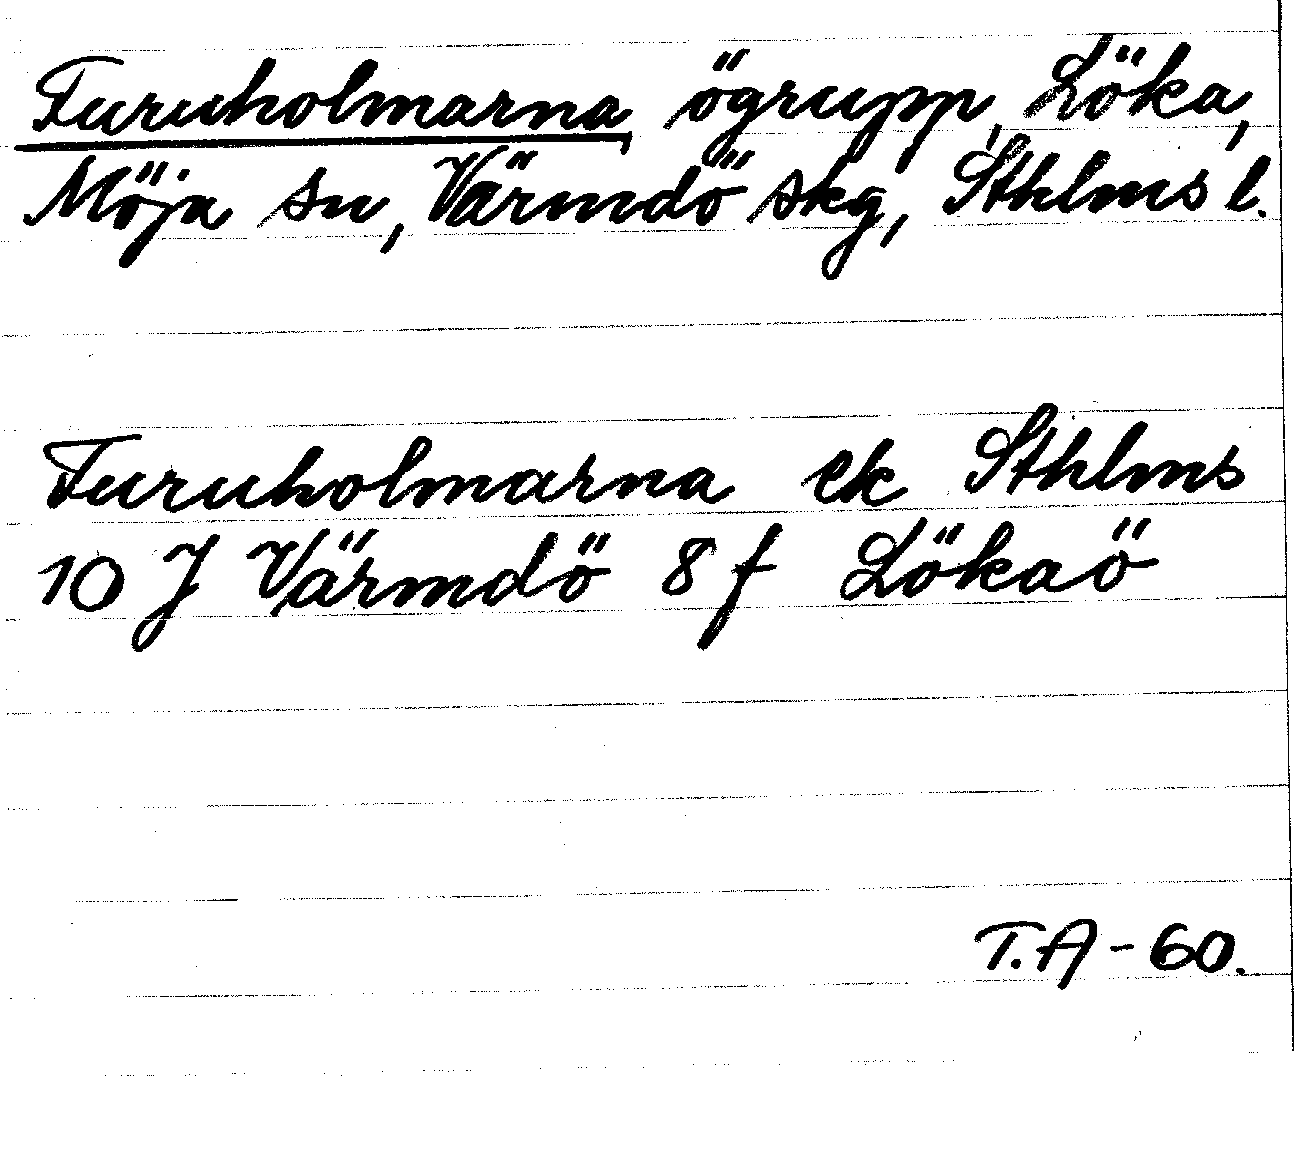 Furuholmarna, ögrupp, Löka,
Möja sn, Värmdö skg, Sthlms l.
Furuholmarna ek Sthlms
10 J Värmdö 8 f Lökaö
T.A - 60.